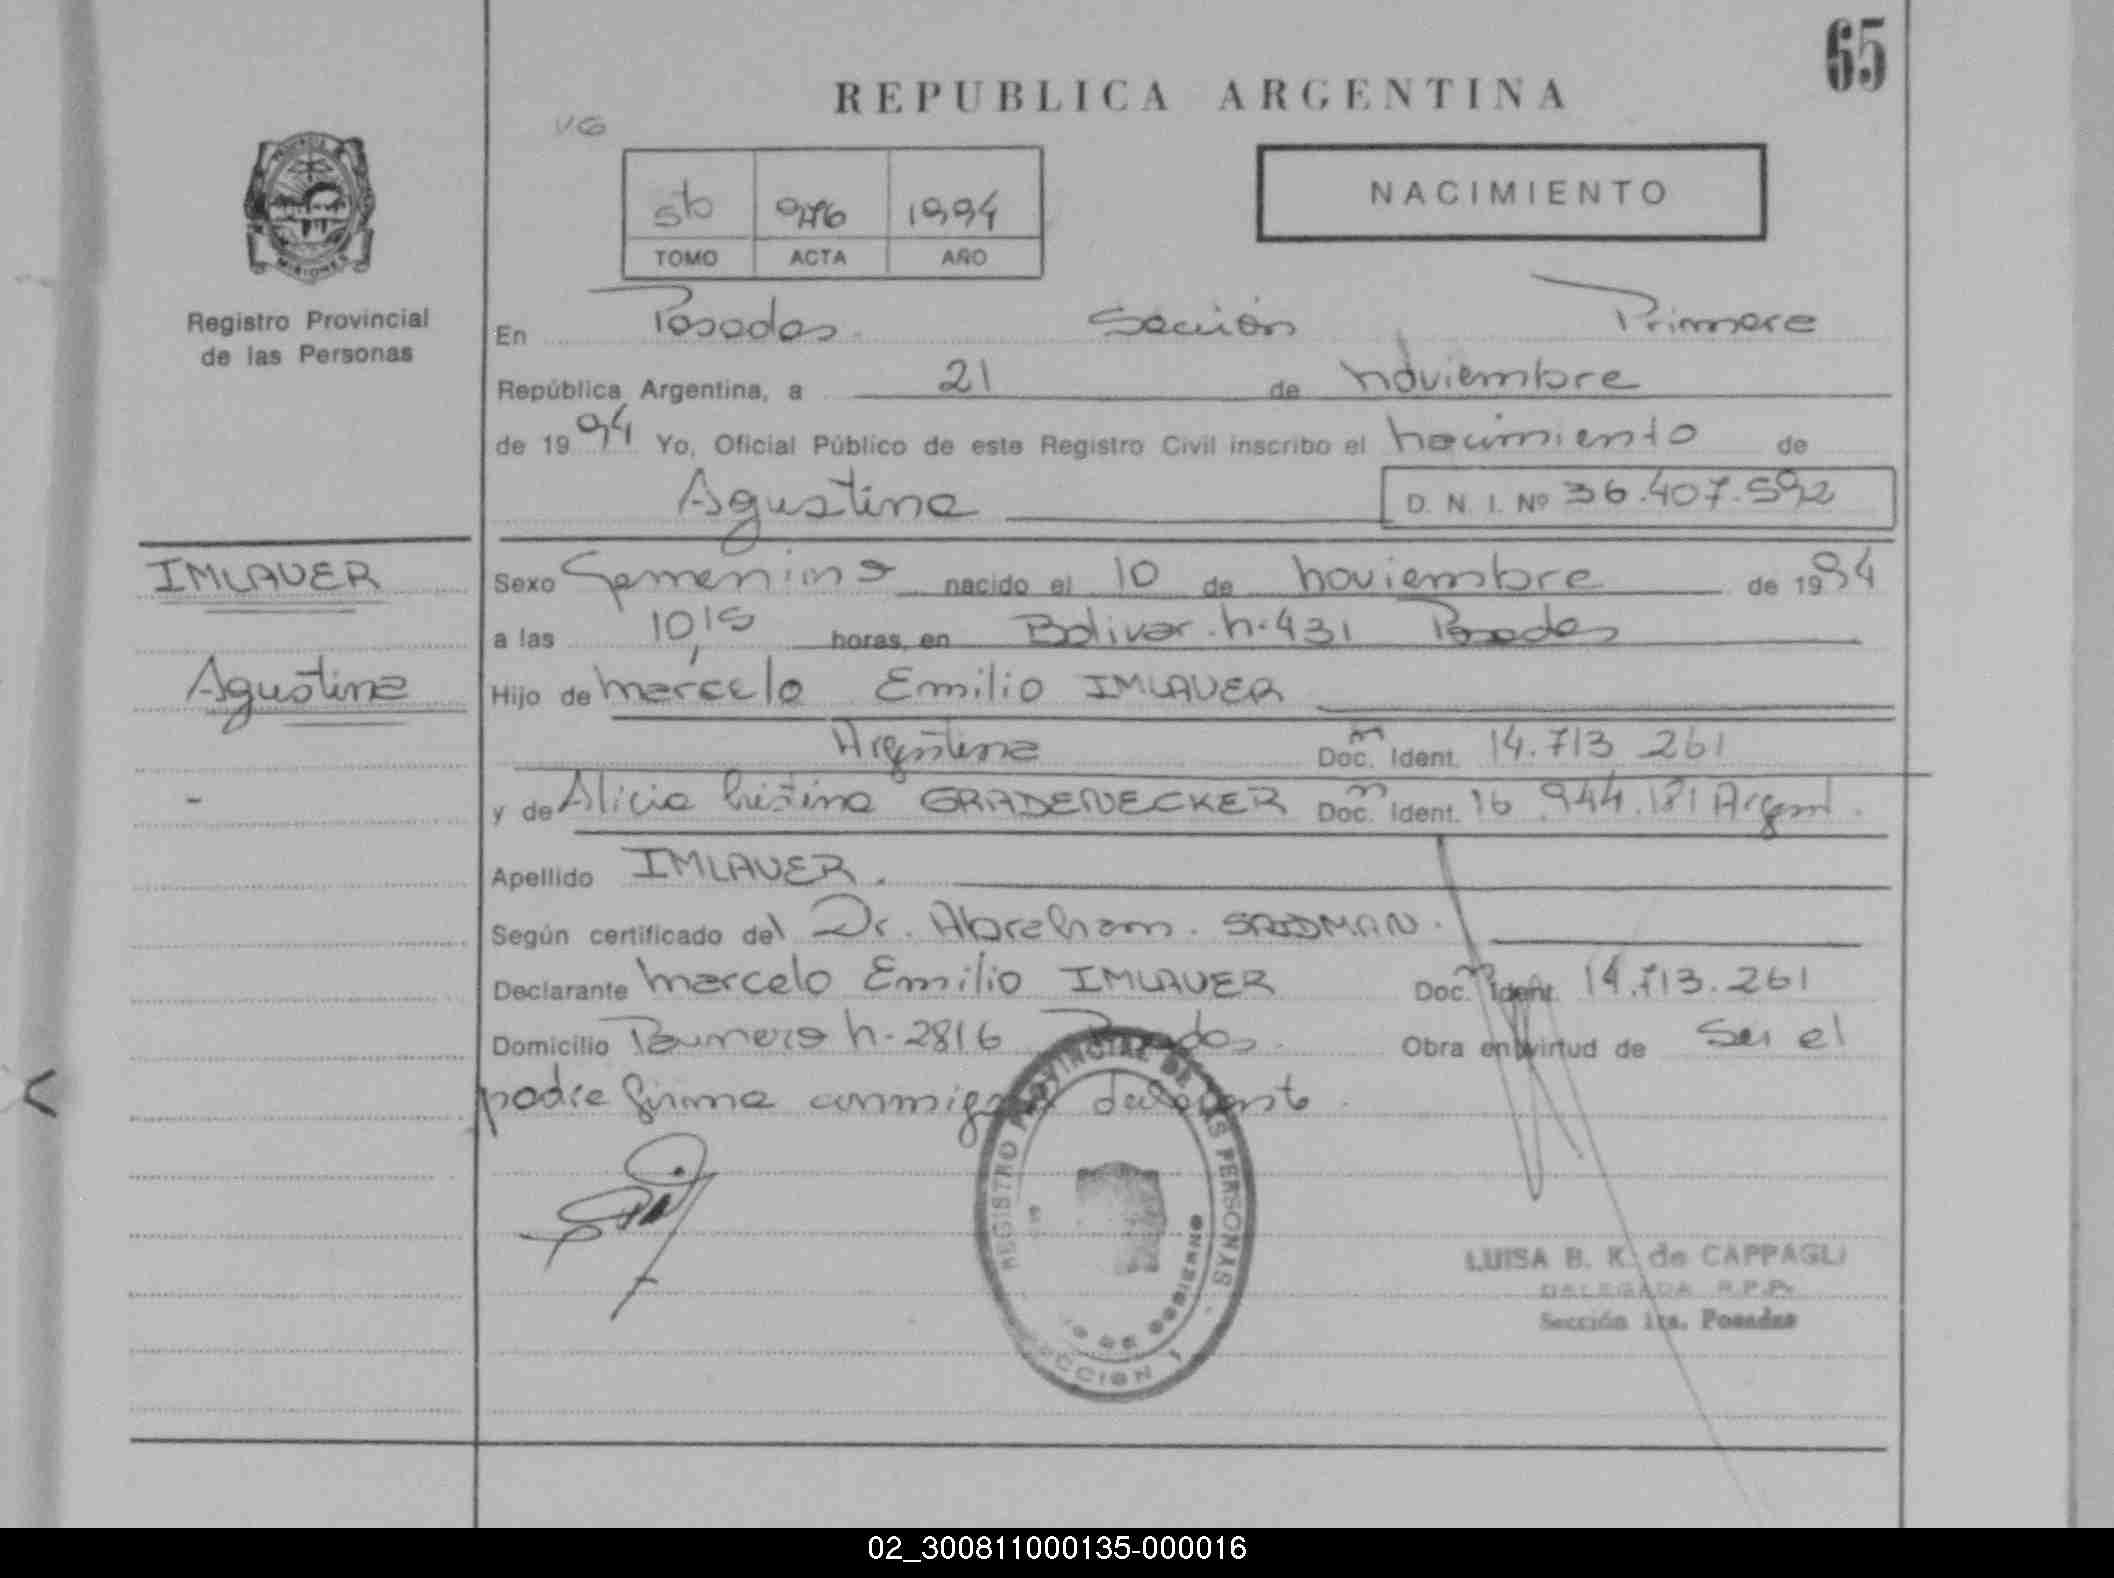 65
REPUBLICA ARGENTINA
VG
NACIMIENTO
5to 976 1994
TOMO ACTA AÑO
Registro Provincial
de las Personas
En Posadas Sección Primera
República Argentina, a 21 de noviembre
de 1994 Yo, Oficial Público de este Registro Civil inscribo el nacimiento de
Agustina D. N. I. Nº 36.407.592
IMLAUER
Agustina
Sexo Femenino nacido el 10 de noviembre de 1994
a las 10,15 horas, en Bolivar n-431 Posadas
Hijo de Marcelo Emilio IMLAUER
Argentina Doc. Ident. 14.713 261
y de Alicia Cristina GRADENECKER Doc. Ident. 16.944.181 Argent.
Apellido IMLAUER.
Según certificado del Dr. Abraham.
Declarante Marcelo Emilio IMLAUER Doc. Ident. 14.713.261
Domicilio n-2816 Posadas. Obra en virtud de ser el
padre firma conmigo
REGISTRO PROVINCIAL DE LAS PERSONAS
IO DE GOBIERNO
SECCION 1
LUISA B. K. de CAPPAGLI
DELEGADA R.P.P.
Sección 1ra. Posadas
02_300811000135-000016